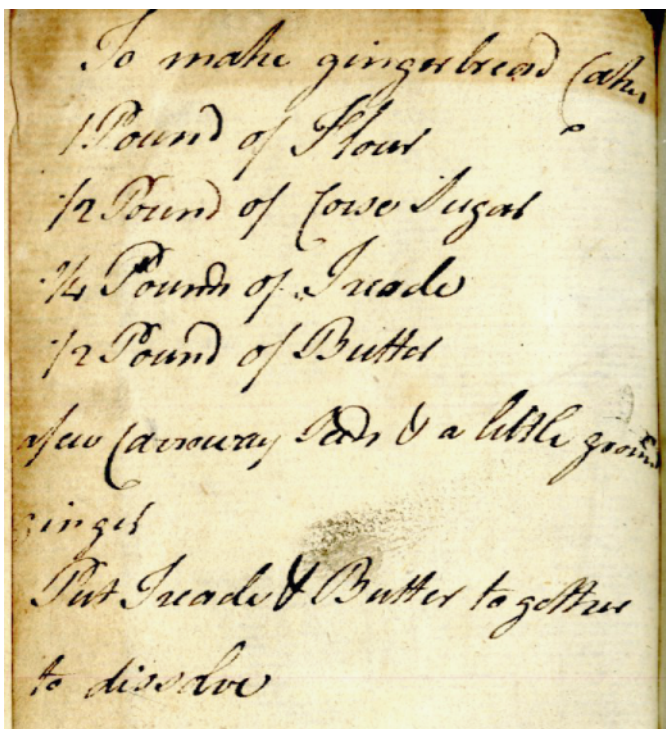 To make gingerbread Cakes
1 Pound of Flour
1/2 Pound of Corse Sugar
3/4 Pound of Treacle
1/2 Pound of Butter
a few Carroway Seeds & a little ground
ginger
Put Treacle & Butter together
to dissolve